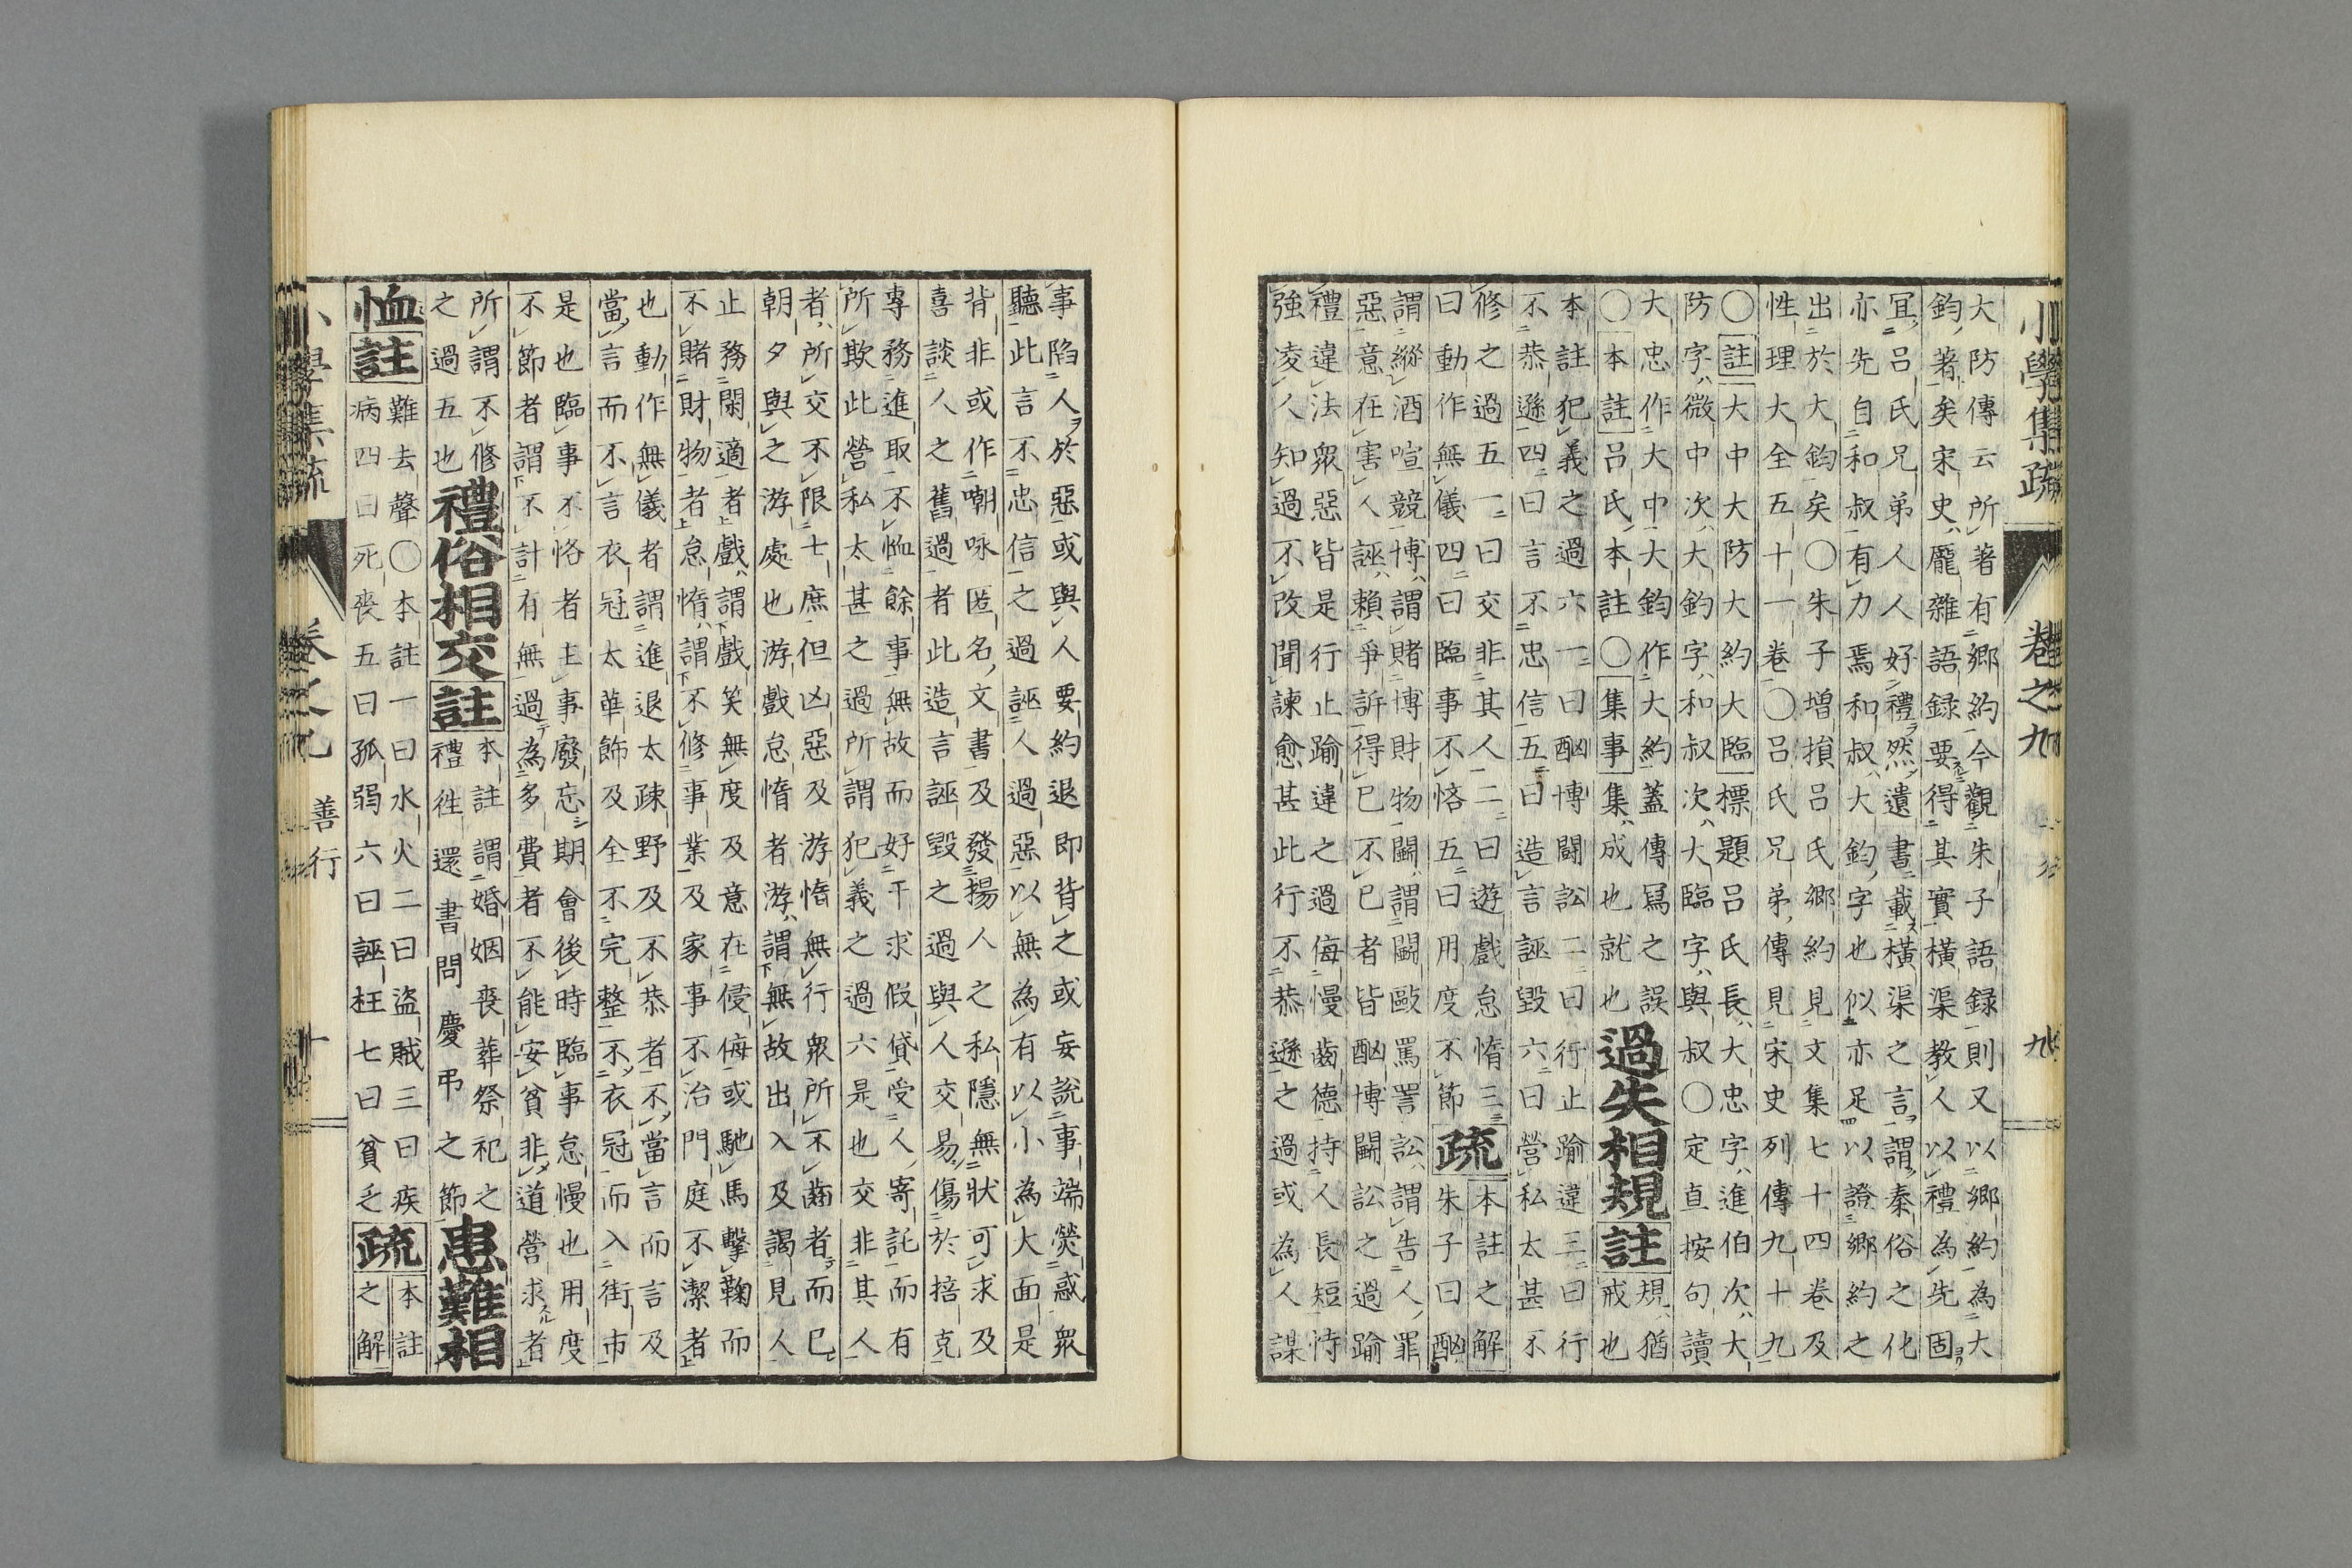 小學集疏 卷之九 九
大防傳云所著有鄉約今觀朱子語録則又以鄉約為大
鈞著矣宋史龐雜語録要得其實横渠教人以禮為先固
宜呂氏兄弟人人好禮然遺書載横渠之言謂秦俗之化
亦先自和叔有力焉和叔大鈞字也似亦足以證鄉約之
出於大鈞矣〇朱子增損呂氏鄉約見文集七十四卷及
性理大全五十一卷〇呂氏兄弟傳見宋史列傳九十九
〇註大中大防大約大臨標題呂氏長大忠字進伯次大
防字微中次大鈞字和叔次大臨字與叔〇定直按句讀
大忠作大中大鈞作大約蓋傳冩之誤
〇本註呂氏本註〇集事集成也就也
過失相規註規猶
戒也
本註犯義之過六一曰酗博鬪訟二曰行止踰違三曰行
不恭遜四曰言不忠信五曰造言誣毀六曰營私太甚不
修之過五一曰交非其人二曰遊戲怠惰三
曰動作無儀四曰臨事不恪五曰用度不節
疏本註之解
朱子曰酗
謂縱酒喧競博謂賭博財物鬪謂鬪毆罵詈訟謂告人罪
惡意在害人誣賴爭訢得已不已者皆酗博鬪訟之過踰
禮違法衆惡皆是行止踰違之過侮慢齒德持人長短恃
強凌人知過不改聞諫愈甚此行不恭遜之過或為人謀
事陷人於惡或與人要約退即背之或妄說事端熒惑衆
聽此言不忠信之過誣人過惡以無為有以小為大面是
背非或作嘲咏匿名文書及發揚人之私隱無狀可求及
喜談人之舊過者此造言誣毀之過與人交易傷於掊克
專務進取不恤餘事無故而好干求假貸受人寄託而有
所欺此營私太甚之過所謂犯義之過六是也交非其人
者所交不限士庶但凶惡及游惰無行衆所不齒者而已
朝夕與之游處也游戲怠惰者游謂無故出入及謁見人
止務閑適者戲謂戲笑無度及意在侵侮或馳馬擊鞠而
不賭財物者怠惰謂不修事業及家事不治門庭不潔者
也動作無儀者謂進退太疎野及不恭者不當言而言及
當言而不言衣冠太華飾及全不完整不衣冠而入街市
是也臨事不恪者主事廢忘期會後時臨事怠慢也用度
不節者謂不計有無過為多費者不能安貧非道營求者
所謂不修
之過五也
禮俗相交註本註謂婚姻喪葬祭祀之
禮徃還書問慶弔之節
患難相
恤註難去聲〇本註一曰水火二曰盜賊三曰疾
病四曰死喪五曰孤弱六曰誣枉七曰貧乏
疏本註
之解
小學集疏 卷之九 善行 十